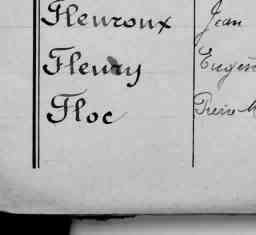 Fleuroux Jean
Fleury Eugèn
Floc Pierre M